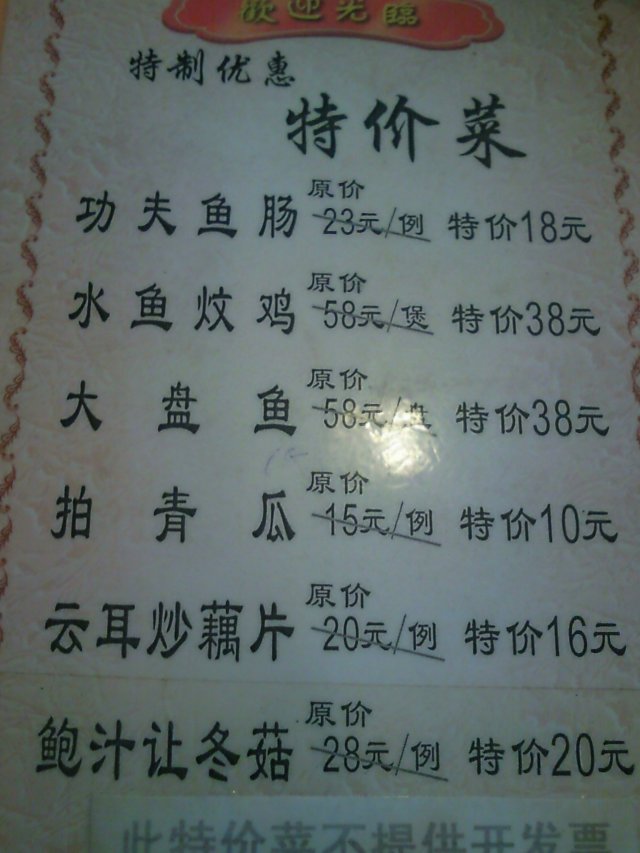 歡迎光臨
特制优惠
特价菜
功夫鱼肠 原价23元/例 特价18元
水鱼炆鸡 原价58元/煲 特价38元
大盘鱼 原价58元/盘 特价38元
拍青瓜 原价15元/例 特价10元
云耳炒藕片 原价20元/例 特价16元
鲍汁让冬菇 原价28元/例 特价20元
此特价菜不提供开发票